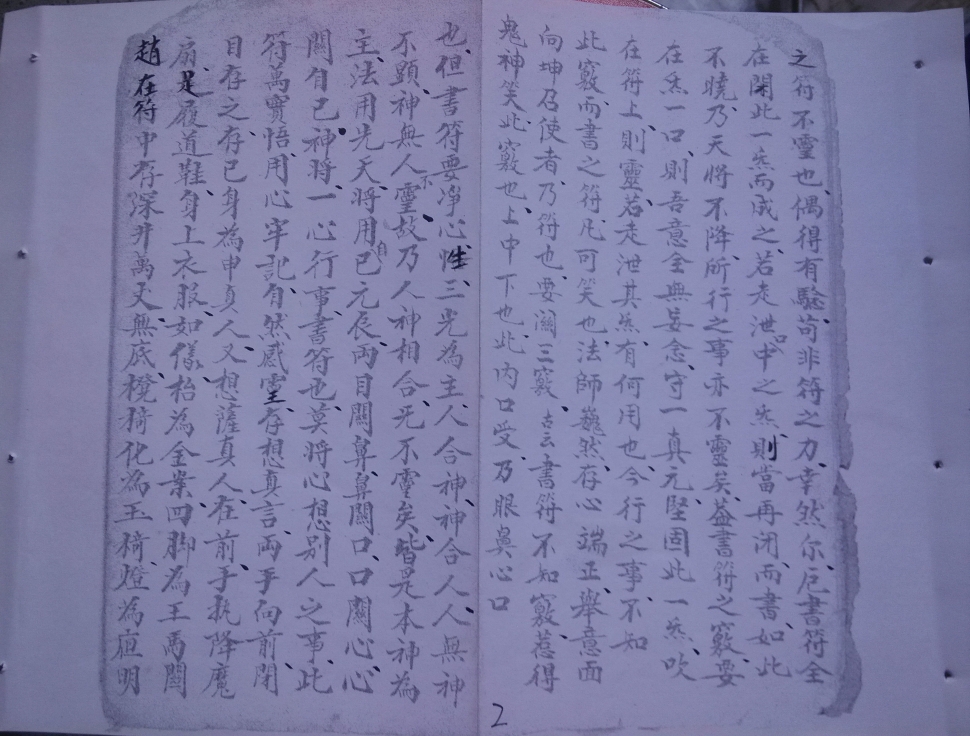 之符不靈也、偶得有驗、苟非符之力、幸然尔、凡書符全
在閉此一炁而成之、若走泄口中之炁、則當再闭、而書、如此
不曉、乃天将不降、所行之事亦不靈矣、蓋書符之竅、要
在炁一口、則吾意全無妄念、守一真元、堅固此一炁、吹
在符上、則靈、若走泄其炁、有何用也、今行之事、不知
此竅、而書之符、凡可笑也、法師巍然、存心端正、舉意面
向坤召使者、乃符也、要闭三竅、古云書符不知竅、惹得
鬼神笑、此竅也、上中下也、此内口受、乃眼鼻心口
也、但書符要净心性、三光為主、人合神、神合人、人無神
不顕、神無人不靈、故乃人神相合、无不靈矣、皆是本神為
主、法用先天、将用自己元辰、両目關鼻、鼻關口、口關心、心
關自己、神将、一心行事、書符也、莫将心想别人之事、此
符萬寶悟用、心牢記、自然感靈、存想真言、両手向前、閉
目存之、存己身為申真人、又想薩真人、在前、手執降魔
扇、是履道鞋、身上衣服、如儀、枱為金案、四脚為王馬關
趙、在符中存深井萬丈、無底、櫈椅化為玉椅、燈為 明
2